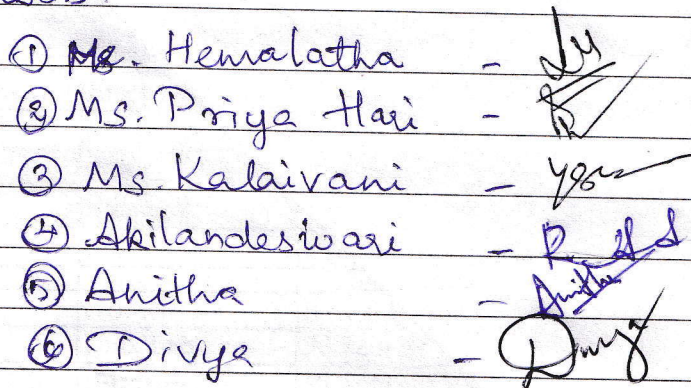 ① Ms. Hemalatha -
② Ms. Priya Hari -
③ Ms. Kalaivani -
④ Akilandeswari -
⑤ Anitha - Anitha
⑥ Divya -